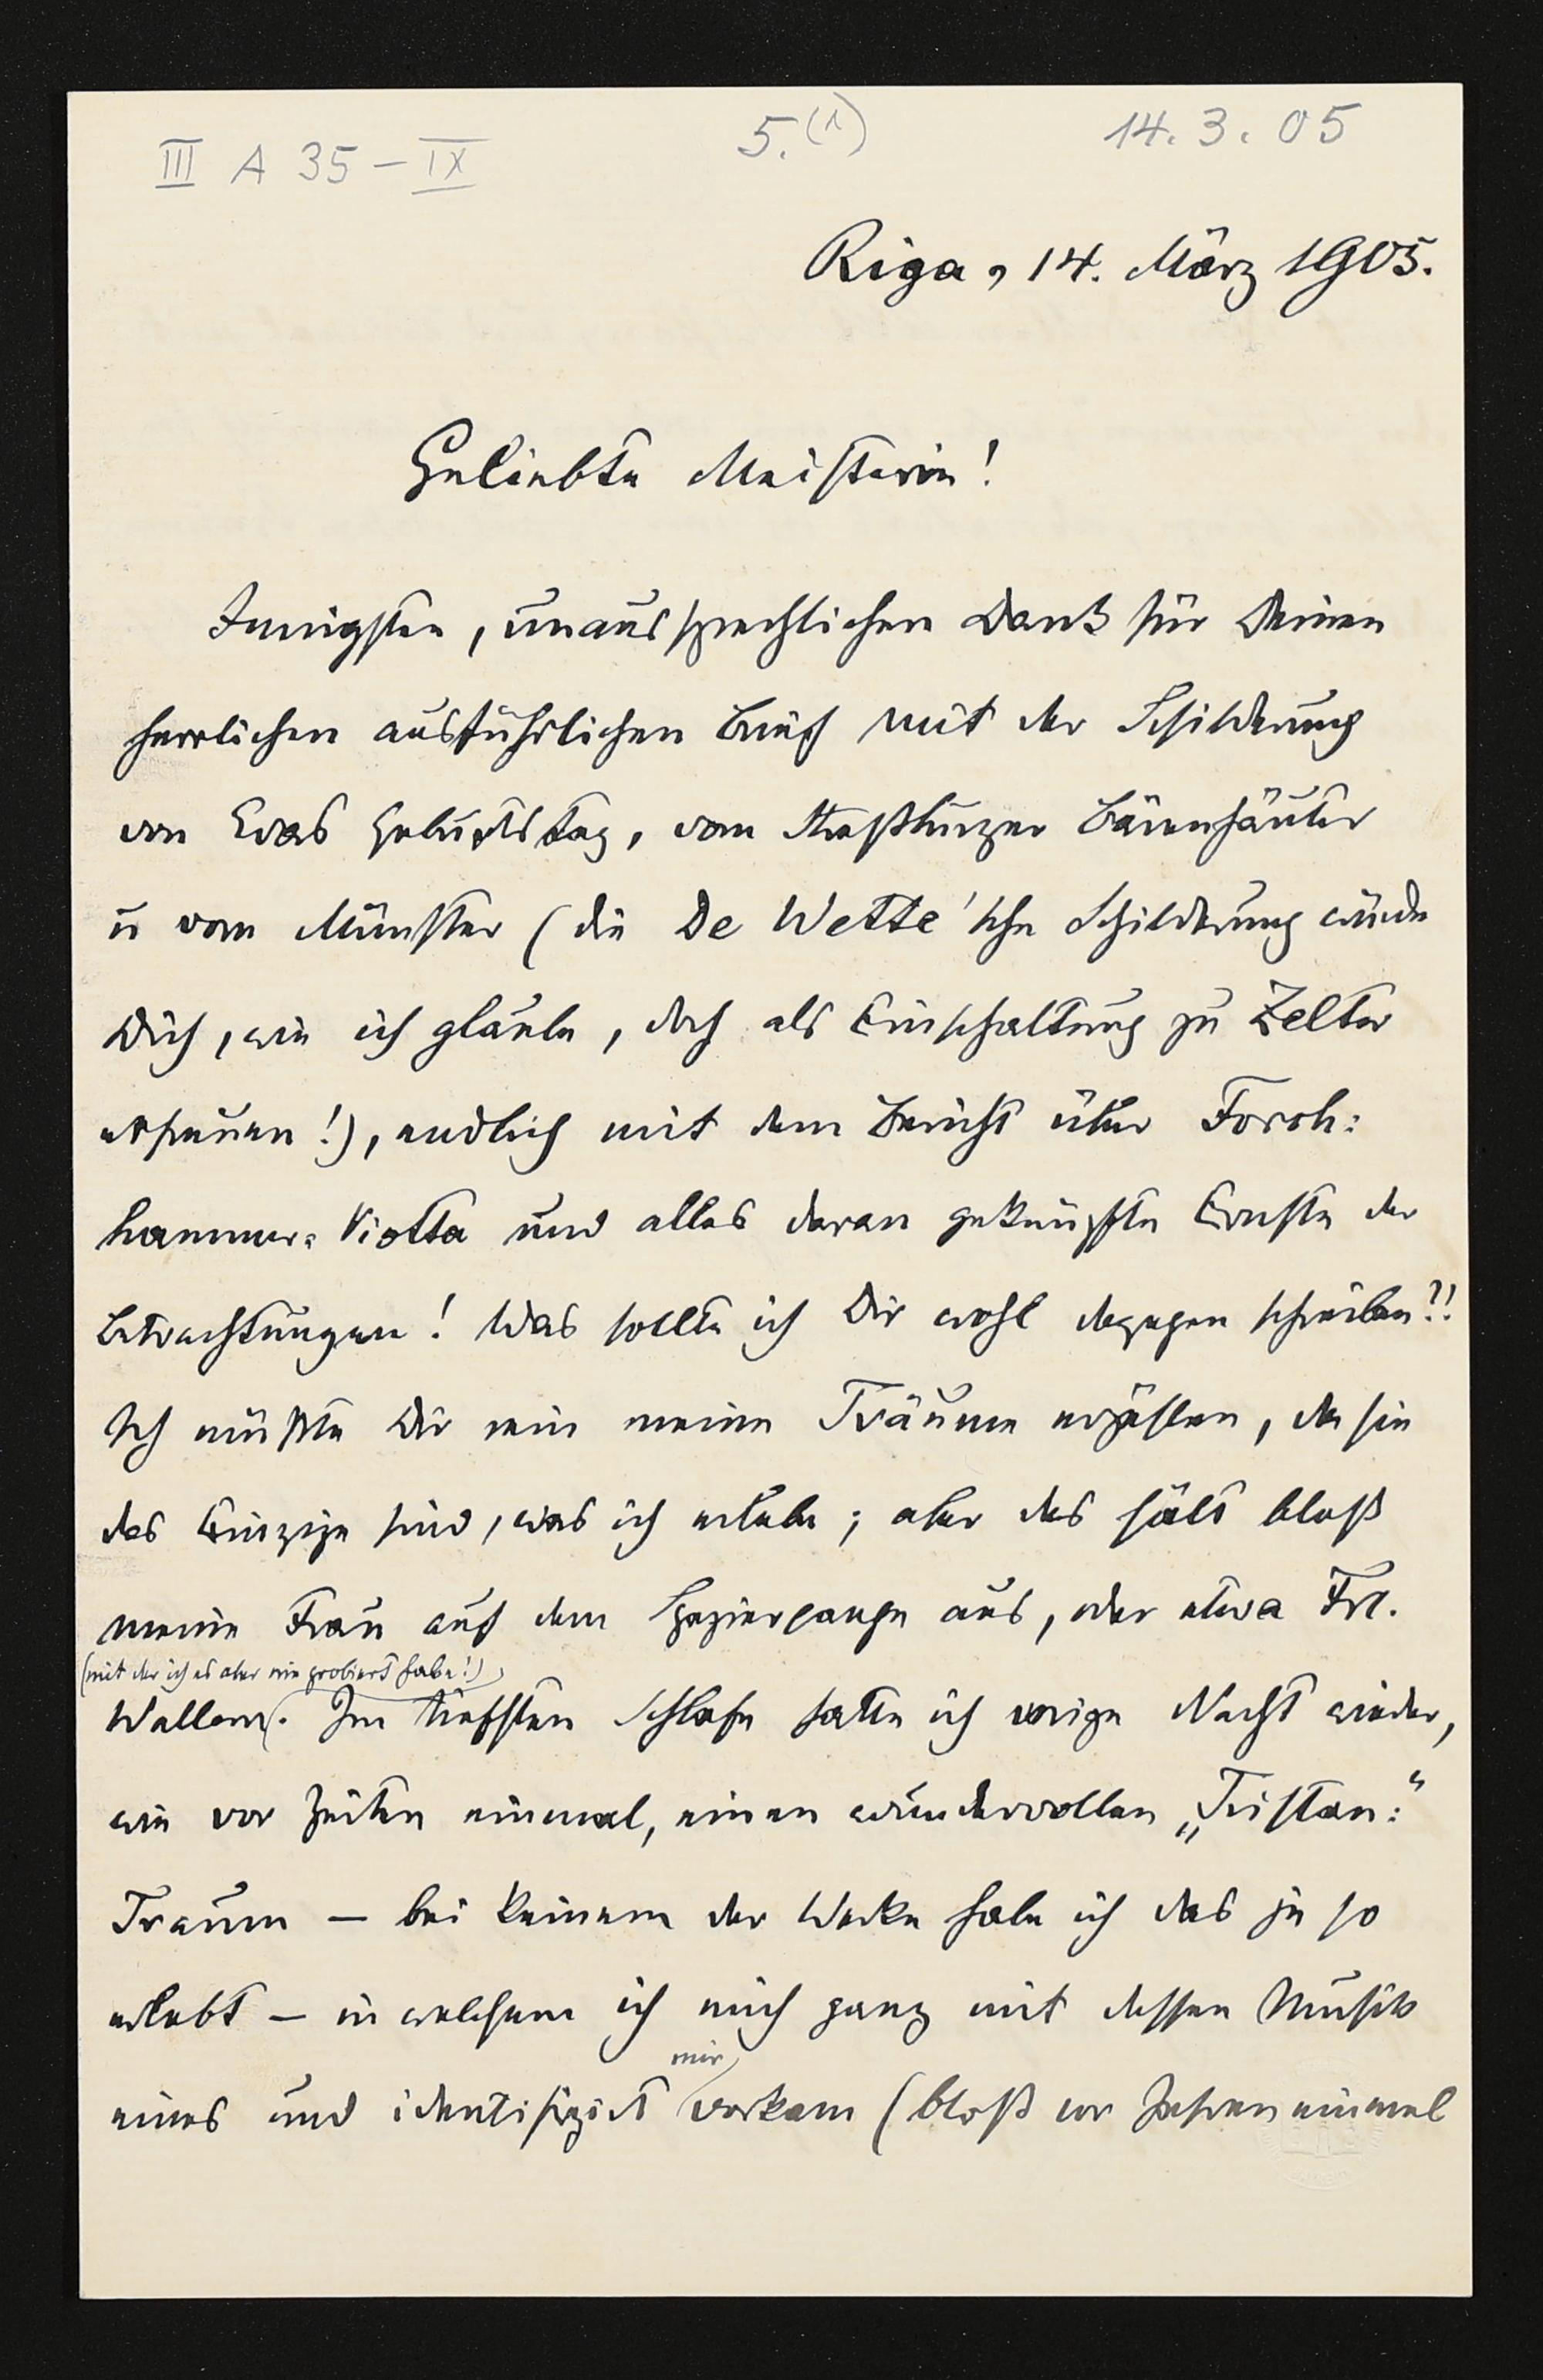 III A 35 – IX
5.(1)
14. 3. 05
Riga, 14. März 1905.
Geliebte Meisterin!
Innigsten, unaussprechlichen Dank für Deinen
herrlichen ausführlichen Brief mit der Schilderung
von Evas Geburtstag, vom Straßburger Bärenhäuter
u vom Münster (die De Wette'sche Schilderung würde
Dich, wie ich glaube, doch als Einschaltung zu Zelter
erfreuen!), endlich mit dem Bericht über Forch:
hammer-Viotta und alles daran geknüpfte Ernste der
Betrachtungen! Was sollte ich Dir wohl dagegen schreiben?!
Ich müßte Dir rein meine Träume erzählen, da sie
das Einzige sind, was ich erlebe; aber das hält bloß
meine Frau auf dem Spaziergange aus, oder etwa Frl.
(mit der ich es aber nie probiert habe!)
Wallem. Im tiefsten Schlafe hatte ich vorige Nacht wieder,
wie vor Zeiten einmal, einen wundervollen „Tristan:"
Traum — bei keinem der Werke habe ich das je so
erlebt — in welchem ich mich ganz mit dessen Musik
mir
eines und identifiziert vorkam (bloß vor Jahren einmal